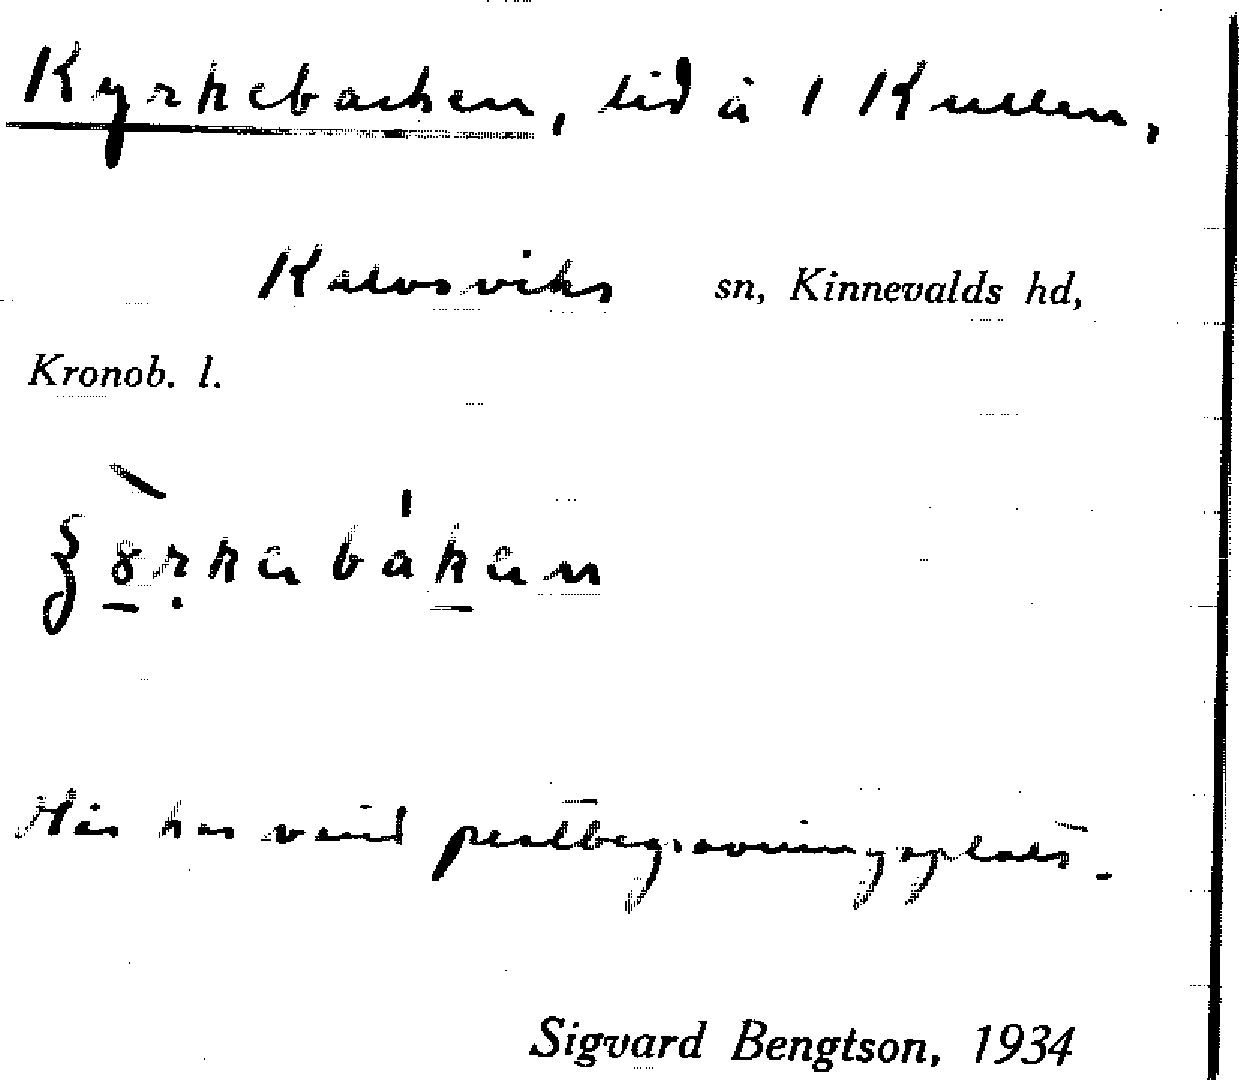 Kyrkebacken, lid å 1 Kullen,
Kalvsviks sn, Kinnevalds hd,
Kronob. l.
Här har varit pestbegravningsplats.
Sigvard Bengtson, 1934